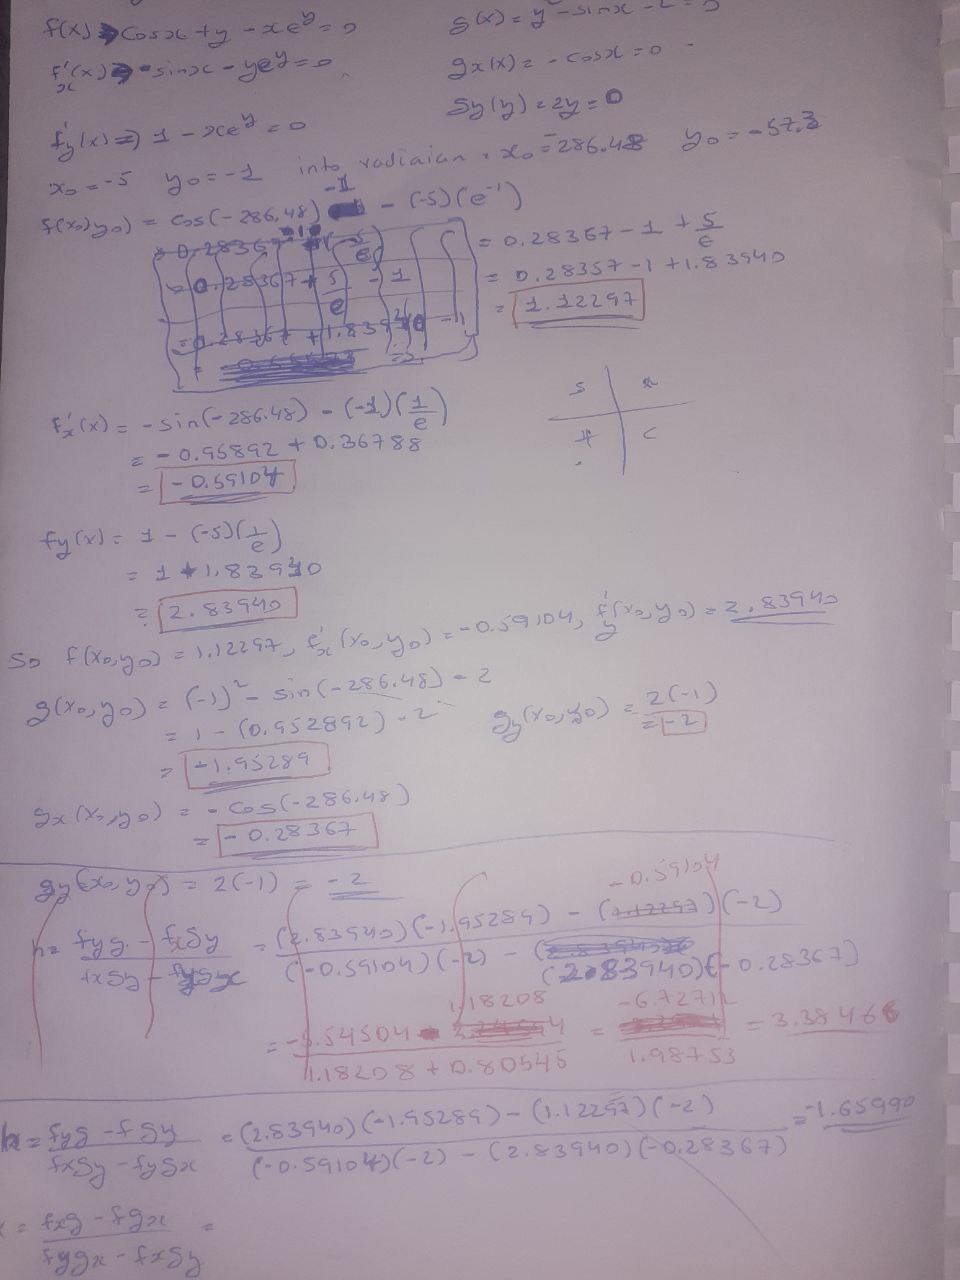 f(x) ⇒ cosx + y - xe^y = 0
g(x) = y² - sinx - 2 = 0
f'x(x) ⇒ - sinx - ye^y = 0
gx(x) = - cosx = 0
f'y(x) ⇒ 1 - xe^y = 0
gy(y) = 2y = 0
x₀ = -5 y₀ = -1 into radiaian = x₀ = -286.48 y₀ = -57.3
f(x₀,y₀) = cos(-286.48) -1 - (-5)(e⁻¹)
= 0.28367 - 1 + 5/e
= 0.28357 - 1 + 1.83940
= 1.12297
= 0.28367 + 5/e - 1
= 0.28367 + 1.83940 - 1
S A
T C
f'x(x) = -sin(-286.48) - (-1)(1/e)
= -0.95892 + 0.36788
= -0.59104
fy(x) = 1 - (-5)(1/e)
= 1 + 1.83940
= 2.83940
So f(x₀,y₀) = 1.12297, f'x(x₀,y₀) = -0.59104, f'y(x₀,y₀) = 2.83940
g(x₀,y₀) = (-1)² - sin(-286.48) - 2
= 1 - (0.952892) - 2
= -1.95289
gy(x₀,y₀) = 2(-1)
= -2
gx(x₀,y₀) = - cos(-286.48)
= - 0.28367
gy(x₀,y₀) = 2(-1) = -2
-0.59104
h = (fyg - fxgy)/(fxgy - fygx) = ((2.83940)(-1.95289) - (1.12297)(-2))/((-0.59104)(-2) - (2.83940)(-0.28367))
= (-5.54504 - 1.18208)/(1.18208 + 0.80545) = -6.72712/1.98753 = 3.38466
h = (fyg - fgy)/(fxgy - fygx) = ((2.83940)(-1.95289) - (1.12297)(-2))/((-0.59104)(-2) - (2.83940)(-0.28367)) = -1.65990
= (fxg - fgx)/(fygx - fxgy) =